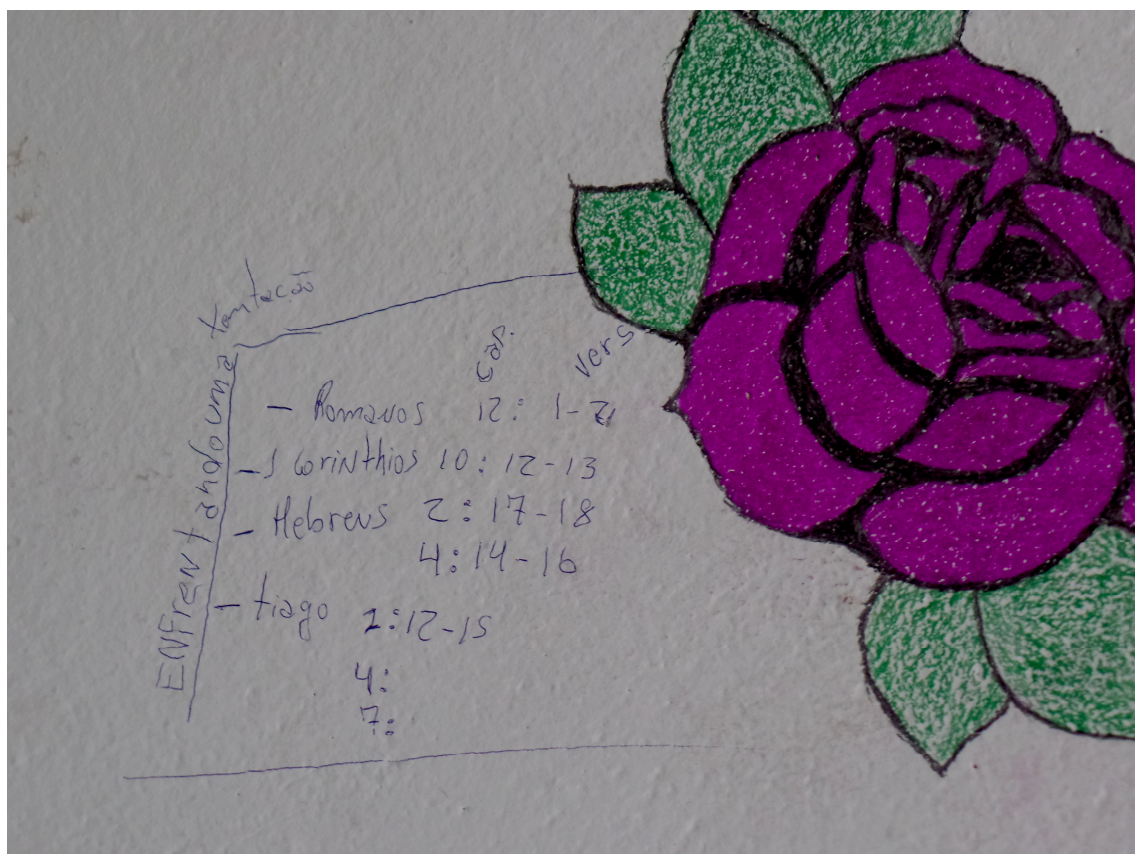 ENFrentandouma
tentação
cap. vers
- Romanos 12: 1-2
- 1 Corinthios 10: 12-13
- Hebreus 2: 17-18
4: 14-16
- tiago 1: 12-15
4:
7: